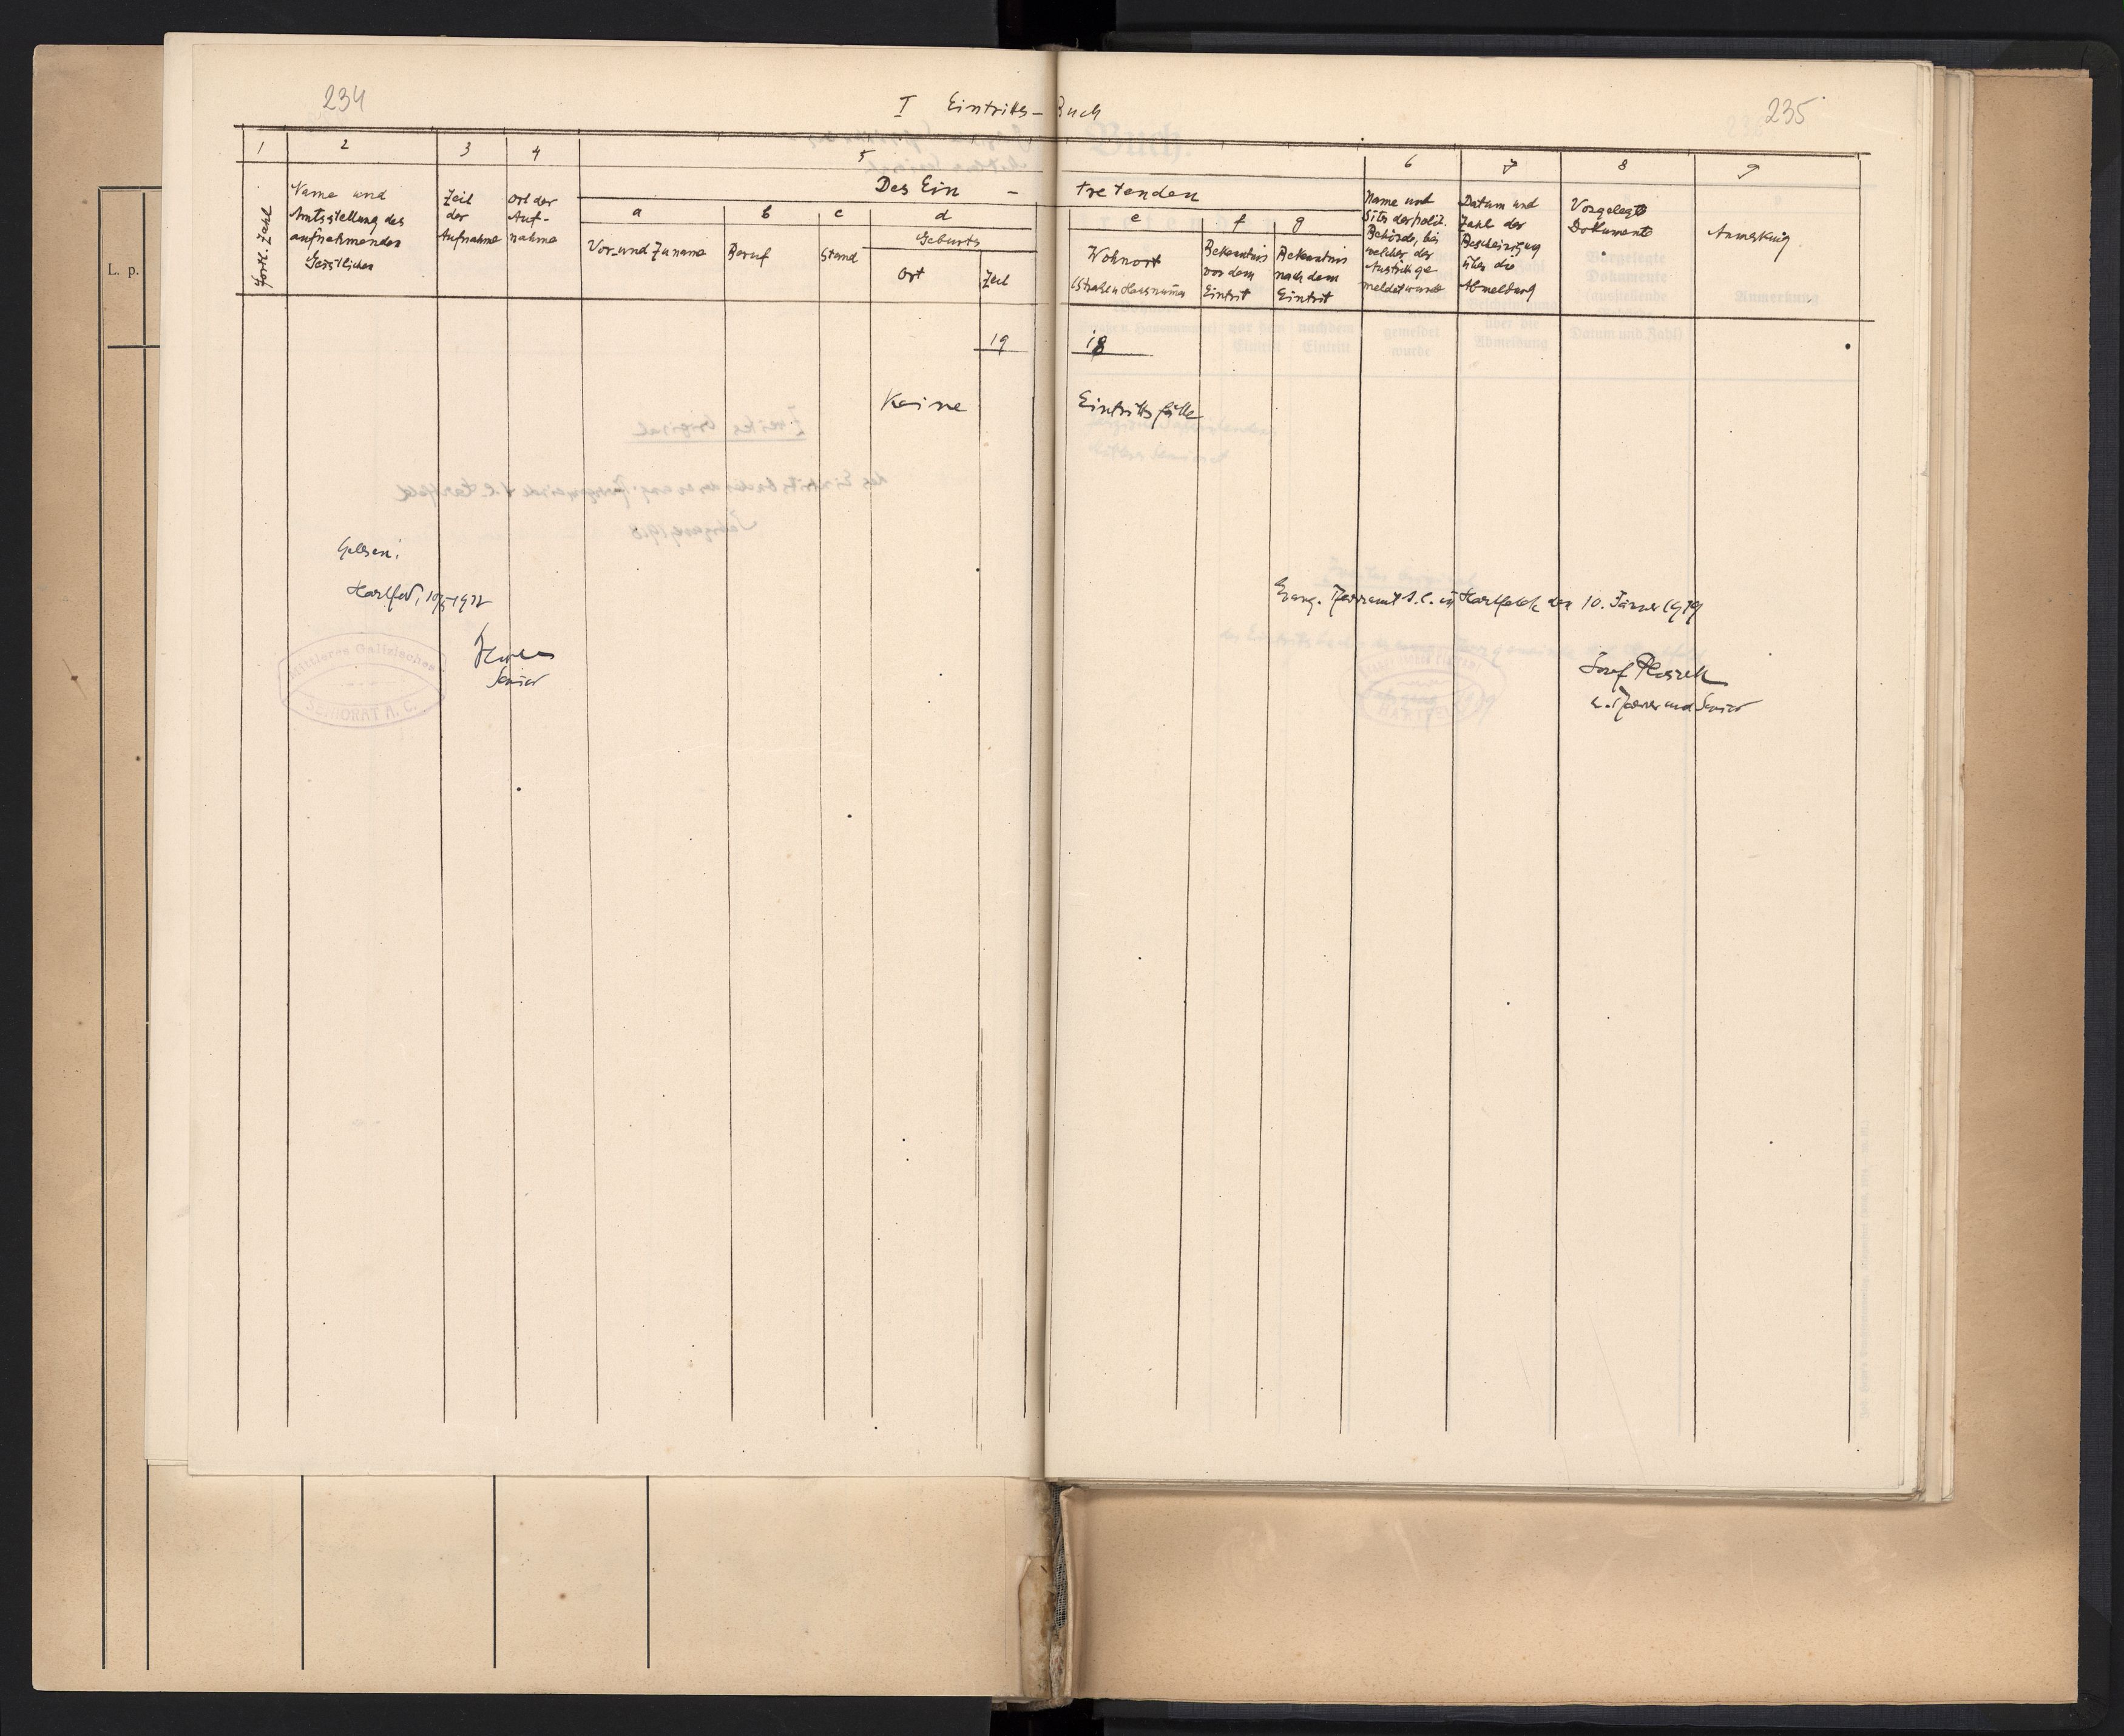 234
235
I Eintritts-Buch
1 2 3 4 5 6 7 8 9
Fortl. Zahl
Name und
Amtsstellung des
aufnehmenden
Geistlichen
Zeit
der
Aufnahme
Ort der
Auf-
nahme
Des Ein - tretenden
a b c d e f g
Vor- und Zuname
Beruf
Stand
Geburts
Ort
Zeit
Wohnort
Bekenntnis
vor dem
Eintrit
Bekenntnis
nach dem
Eintrit
Name und
Sitz der polit.
Behörde, bei
welcher der
Austritt ge
meldet wurde
Datum und
Zahl der
Bescheinigung
über die
Abmeldung
Vorgelegte
Dokumente
Anmerkung
19 18
Keine Eintrittsfälle
Gelesen!
Senior
Mittleres Galizisches
SENIORAT A. C.
Evang. Pfarramt A. C. in Hartfeld den 10. Jänner 1919
Josef
e. Pfarrer und Senior
HARTFELD
L. p.